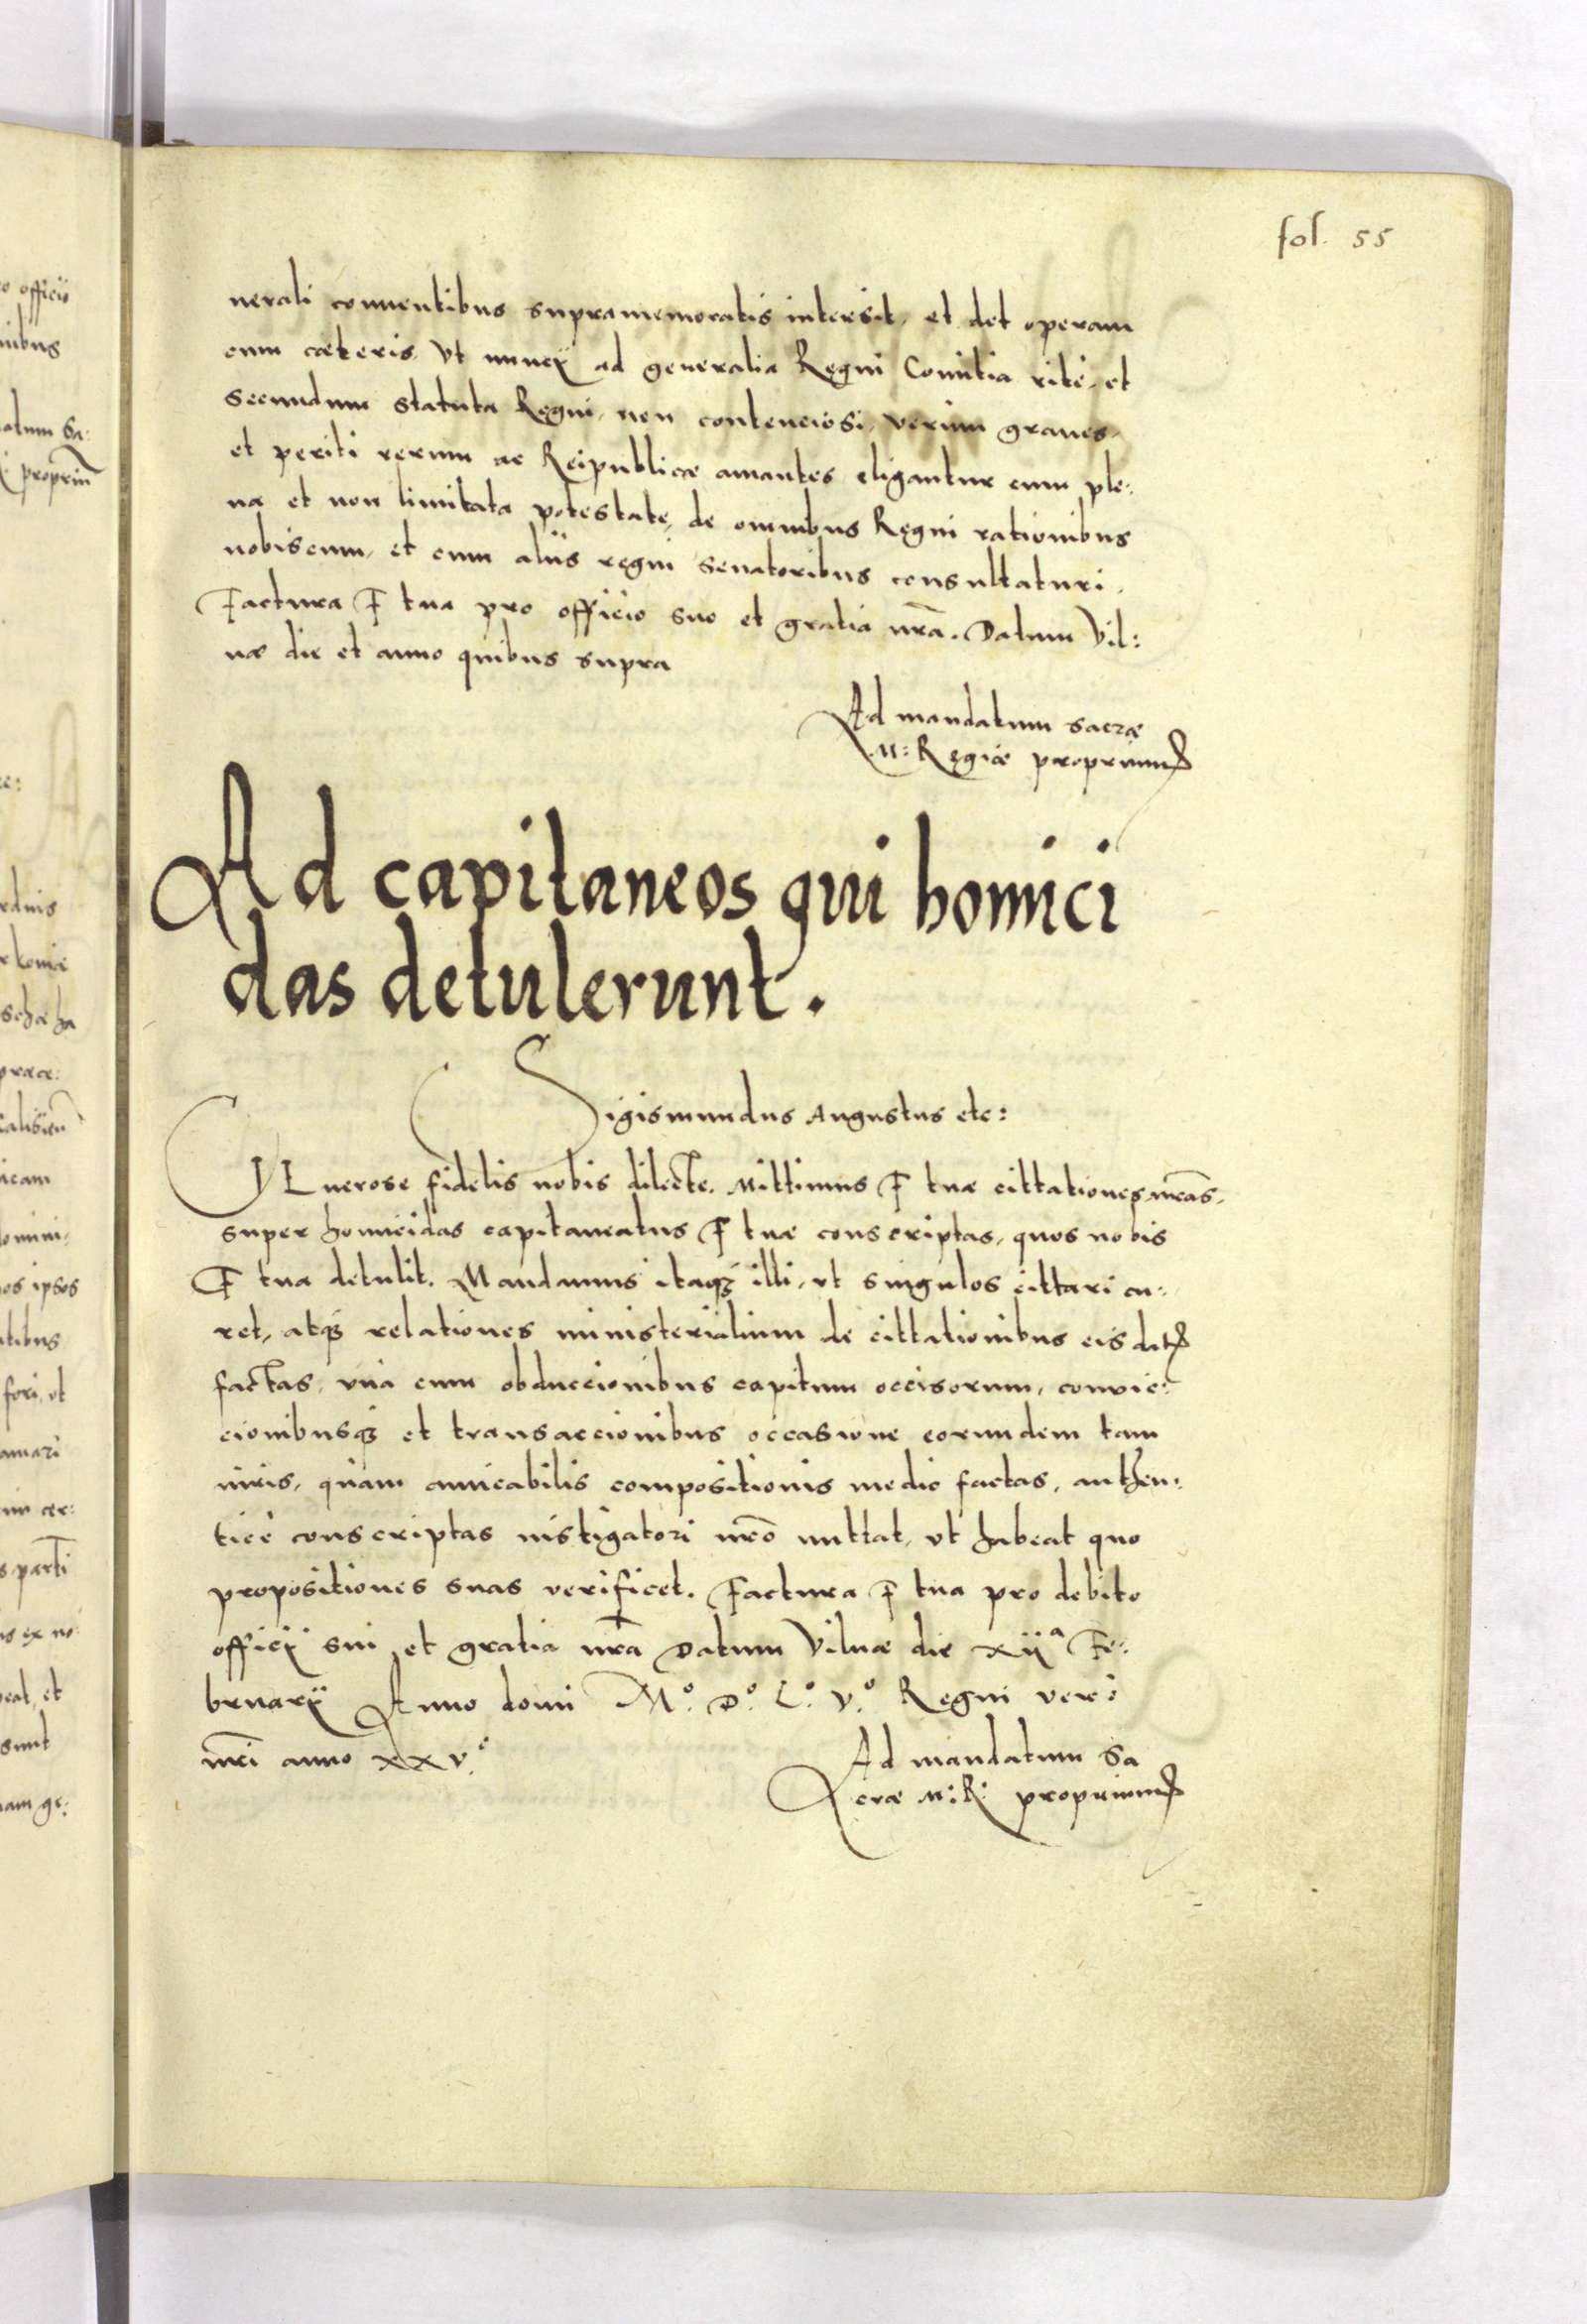 fol. 55
nerali conuentibus supramemoratis intersit, et det operam
cum cæteris vt nuncij ad generalia Regni Comitia ritè, et
secundum statuta Regni, non contenciosi, verùm graues,
et periti rerum ac Reipublicæ amantes eligantur cum ple:
na et non limitata potestate, de omnibus Regni rationibus
nobiscum, et cum alijs regni senatoribus consultaturi.
Factura F tua pro officio suo et gratia nrã. Datum Vil:
næ die et anno quibus supra
Ad mandatum sacræ
M: Regiæ proprium
Ad capitaneos qui homici
das detulerunt.
Sigismundus Augustus etc:
fidelis nobis dilecte. Mittimus F tuæ cittationes nrãs,
super homicidas capitaneatus F tuæ conscriptas, quos nobis
F tua detulit. Mandamus itaqz illi, vt singulos cittari cu:
ret, atqz relationes ministerialium de cittationibus eis
factas, vnà cum obduccionibus capitum occisorum, conuic:
cionibusqz et transaccionibus occasione eorundem tam
iuris, quàm amicabilis compositionis medio factas, authen:
ticè conscriptas instigatori nrõ mittat, vt habeat quo
propositiones suas verificet. Factura F tua pro debito
officij sui et gratia nrã Datum Vilnæ die xijª Fe:
bruarij Anno domi Mº. Dº. Lº. Vº. Regni verò
nrĩ anno xxvº.
Ad mandatum Sa
cræ M: R: proprium